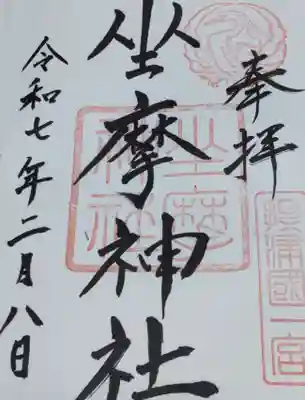 奉拝
坐摩神社
坐摩神社
摂津國一宮
令和七年二月八日